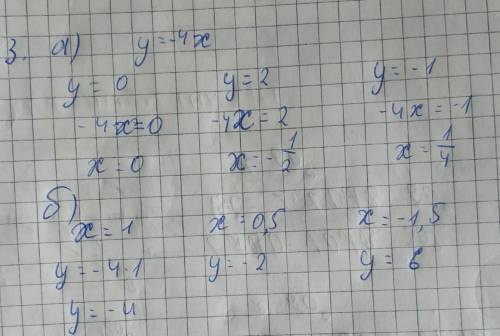 3. а) y = -4x
y = 0 y = 2 y = -1
-4x = 0 -4x = 2 -4x = -1
x = 0 x = -1/2 x = 1/4
б)
x = 1 x = 0,5 x = -1,5
y = -4·1 y = -2 y = 6
y = -4